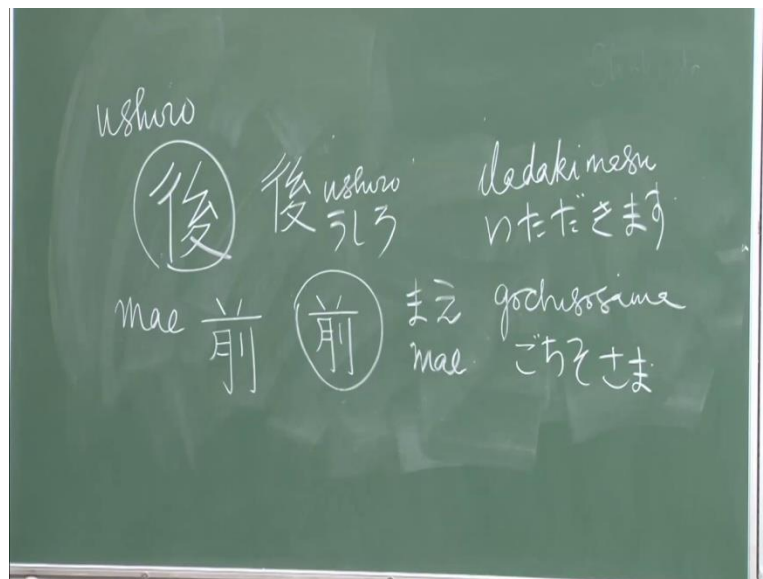 ushiro
後 後 ushiro うしろ
itadakimasu
いただきます
mae 前 前 まえ mae
gochisosama
ごちそさま